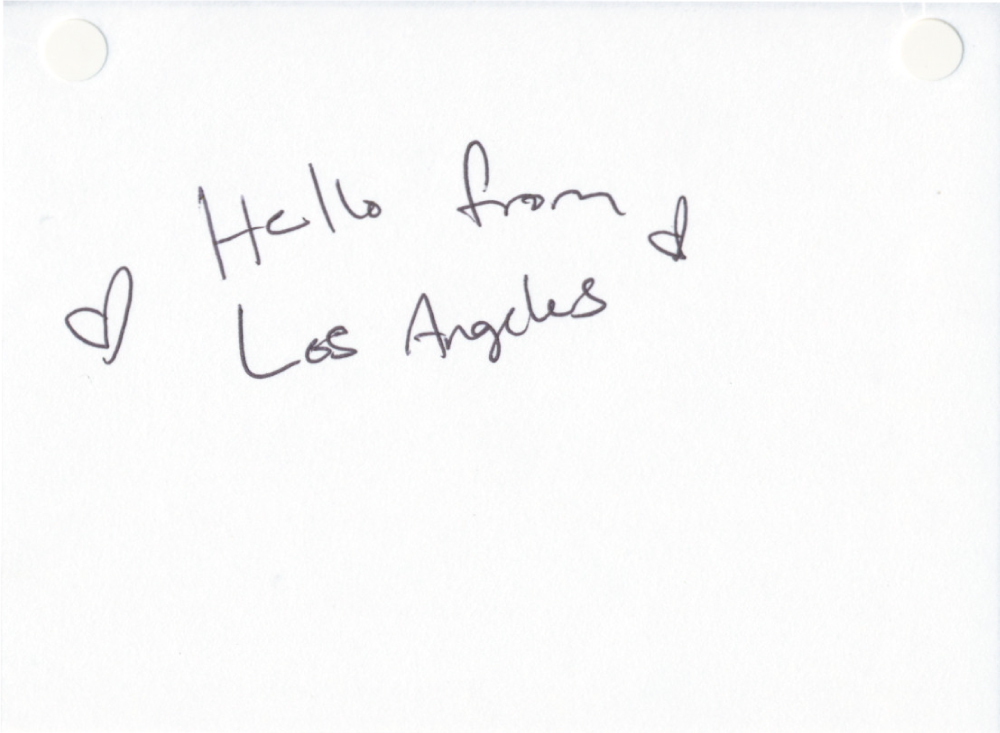 Hello from
Los Angeles